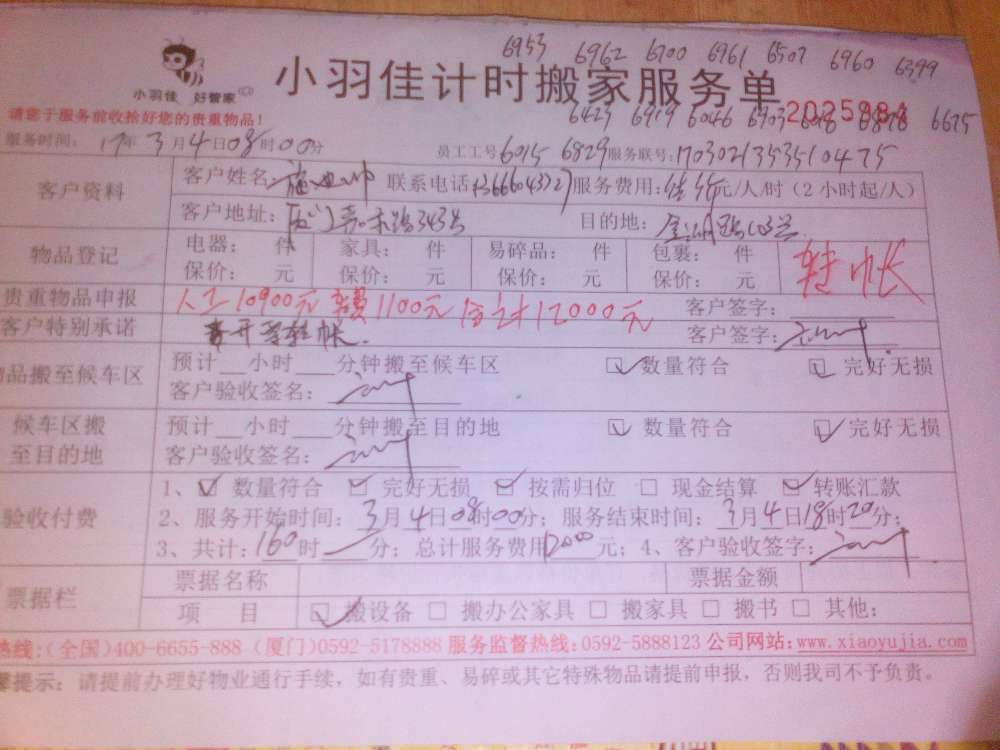 6953 6962 6700 6961 6507 6960 6399
小羽佳 好管家
小羽佳计时搬家服务单
请您于服务前收拾好您的贵重物品!
6423 6919 6046 6903 6675
服务时间: 17年3月4日08时00分 员工工号6015 6829 服务联号:1703021353510475
客户资料 客户姓名: 联系电话13666043727 服务费用: 元/人/时(2小时起/人)
客户地址:厦门嘉禾路343号 目的地:
物品登记 电器: 件 家具: 件 易碎品: 件 包裹: 件 转帐
保价: 元 保价: 元 保价: 元 保价: 元
贵重物品申报 人工10900元 车费1100元 合计12000元 客户签字:
客户特别承诺 要开票转帐. 客户签字:
品搬至候车区 预计__小时___分钟搬至候车区 ☑数量符合 ☑完好无损
客户验收签名:
候车区搬至目的地 预计__小时___分钟搬至目的地 ☑数量符合 ☑完好无损
客户验收签名:
验收付费 1、☑数量符合 ☑完好无损 ☑按需归位 □现金结算 ☑转账汇款
2、服务开始时间:3月4日08时00分;服务结束时间:3月4日18时20分;
3、共计:160时__分;总计服务费用12000元;4、客户验收签字:
票据栏 票据名称 票据金额
项 目 ☑搬设备 □搬办公家具 □搬家具 □搬书 □其他:
热线:(全国)400-6655-888 (厦门)0592-5178888 服务监督热线:0592-5888123 公司网站:www.xiaoyujia.com
提示:请提前办理好物业通行手续,如有贵重、易碎或其它特殊物品请提前申报,否则我司不予负责。